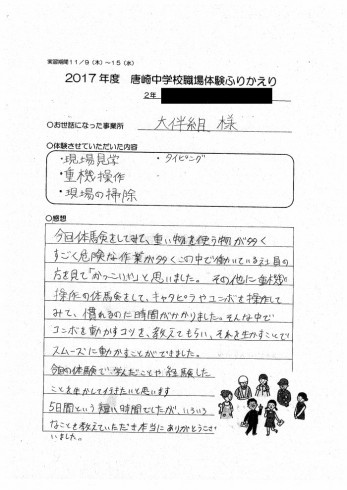 実習期間11/9（木）～15（水）
2017年度 唐崎中学校職場体験ふりかえり
2年
○お世話になった事業所 大伴組 様
○体験させていただいた内容
・現場見学 ・タイピング
・重機操作
・現場の掃除
○感想
今回体験をしてみて、重い物を使う物が多く
すごく危険な作業が多くこの中で働いている社員の
方を見て「かっこいい」と思いました。その他に重機の
操作の体験をして、キャタピラやユンボを操作して
みて、慣れるのに時間がかかりました。そんな中で
ユンボを動かすコツを、教えてもらい、それを生かすことで
スムーズに動かすことができました。
今回の体験で学んだことや経験した
ことを生かして行きたいと思います
5日間という短い時間でしたが、いろいろ
なことを教えていただき本当にありがとうござ
いました。